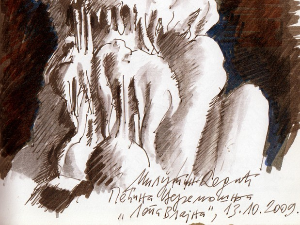 Милутин Дедић
Пећина Церемошња
„Лепа Влајна", 13.10.2009.